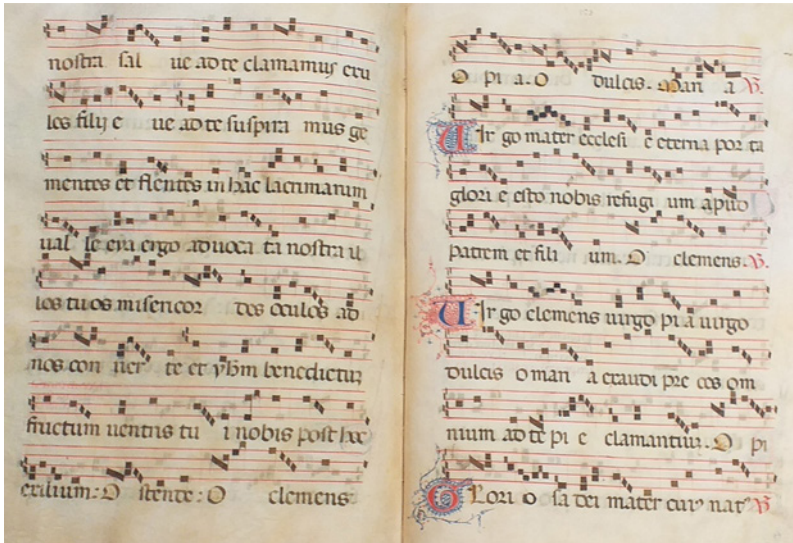 nostra sal ue ad te clamamus exu
les filij e ue ad te suspira mus ge
mentes et flentes in hac lacrimarum
ual le eya ergo aduoca ta nostra il
los tuos misericor des oculos ad
nos con uer te et yhm benedictum
fructum uentris tu i nobis post hoc
exilium: O stende: O clemens
O pi a. O dulcis. Mari a V.
UIr go mater ecclesi e eterna por ta
glori e esto nobis refugi um apud
patrem et fili um. O clemens. V.
UIr go clemens uirgo pi a uirgo
dulcis o mari a exaudi pre ces om
nium ad te pi e clamantium. O pi
GLori o sa dei mater cuius nat V